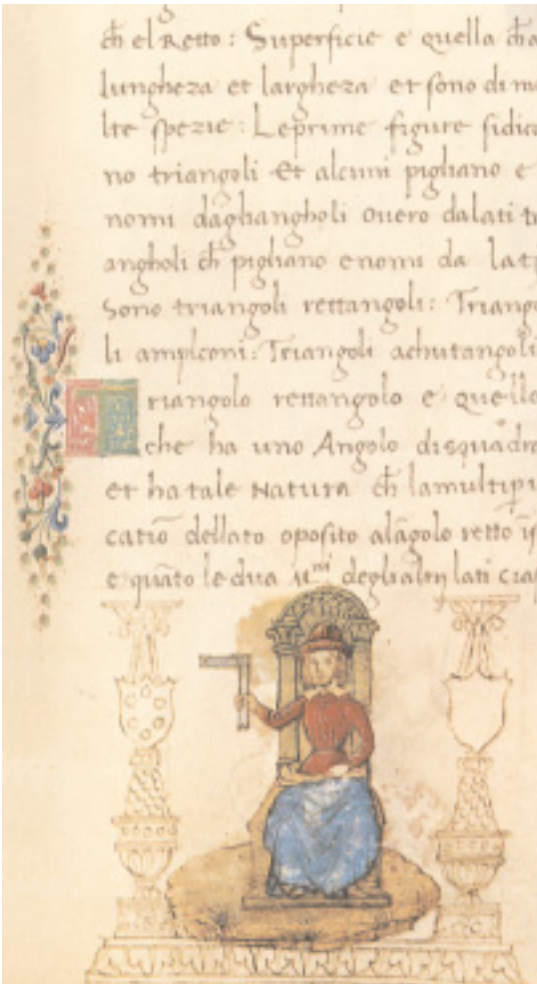 ch̄ el Retto: Superficie e quella ch̄
lungheza et largheza et sono di m
lte spezie: Leprime figure sidic
no triangoli Et alcuni pigliano e
nomi daghangholi ouero dalati tr
angholi ch̄ pigliano enomi da lati
Sono triangoli rettangoli: Triang
li amplconi: Triangoli achutangoli
T riangolo rettangolo e quello
che ha uno Angolo disquadr
et ha tale Natura ch̄ lamultipi
catiō dellato oposito alāgolo retto
e quāto le dua deglialtri lati